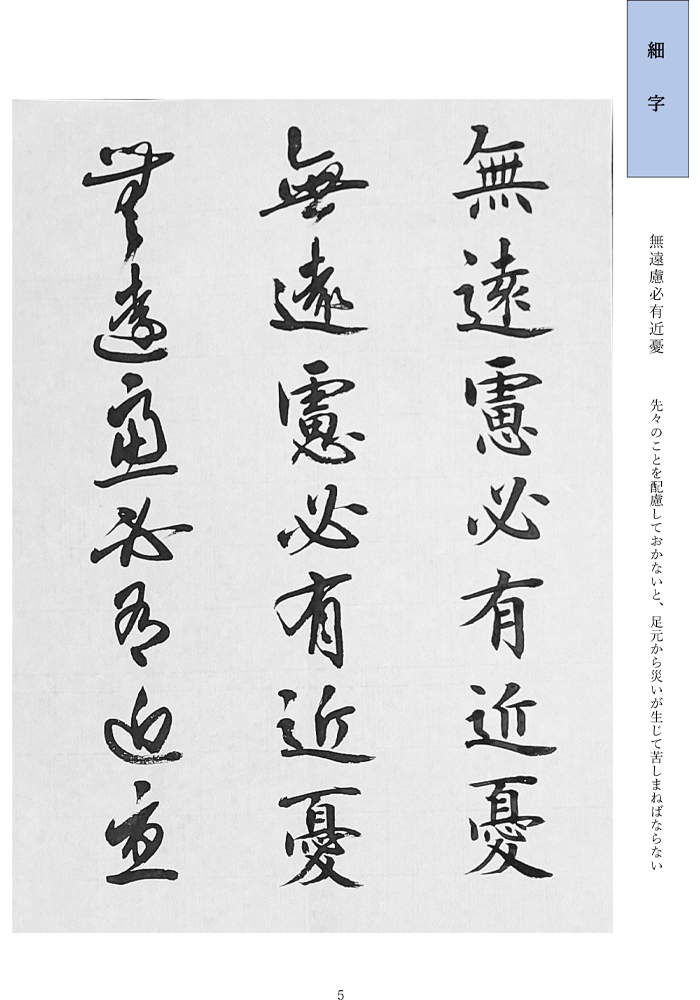 細字
無遠慮必有近憂　先々のことを配慮しておかないと、足元から災いが生じて苦しまねばならない
無遠慮必有近憂
無遠慮必有近憂
無遠慮必有近憂
5